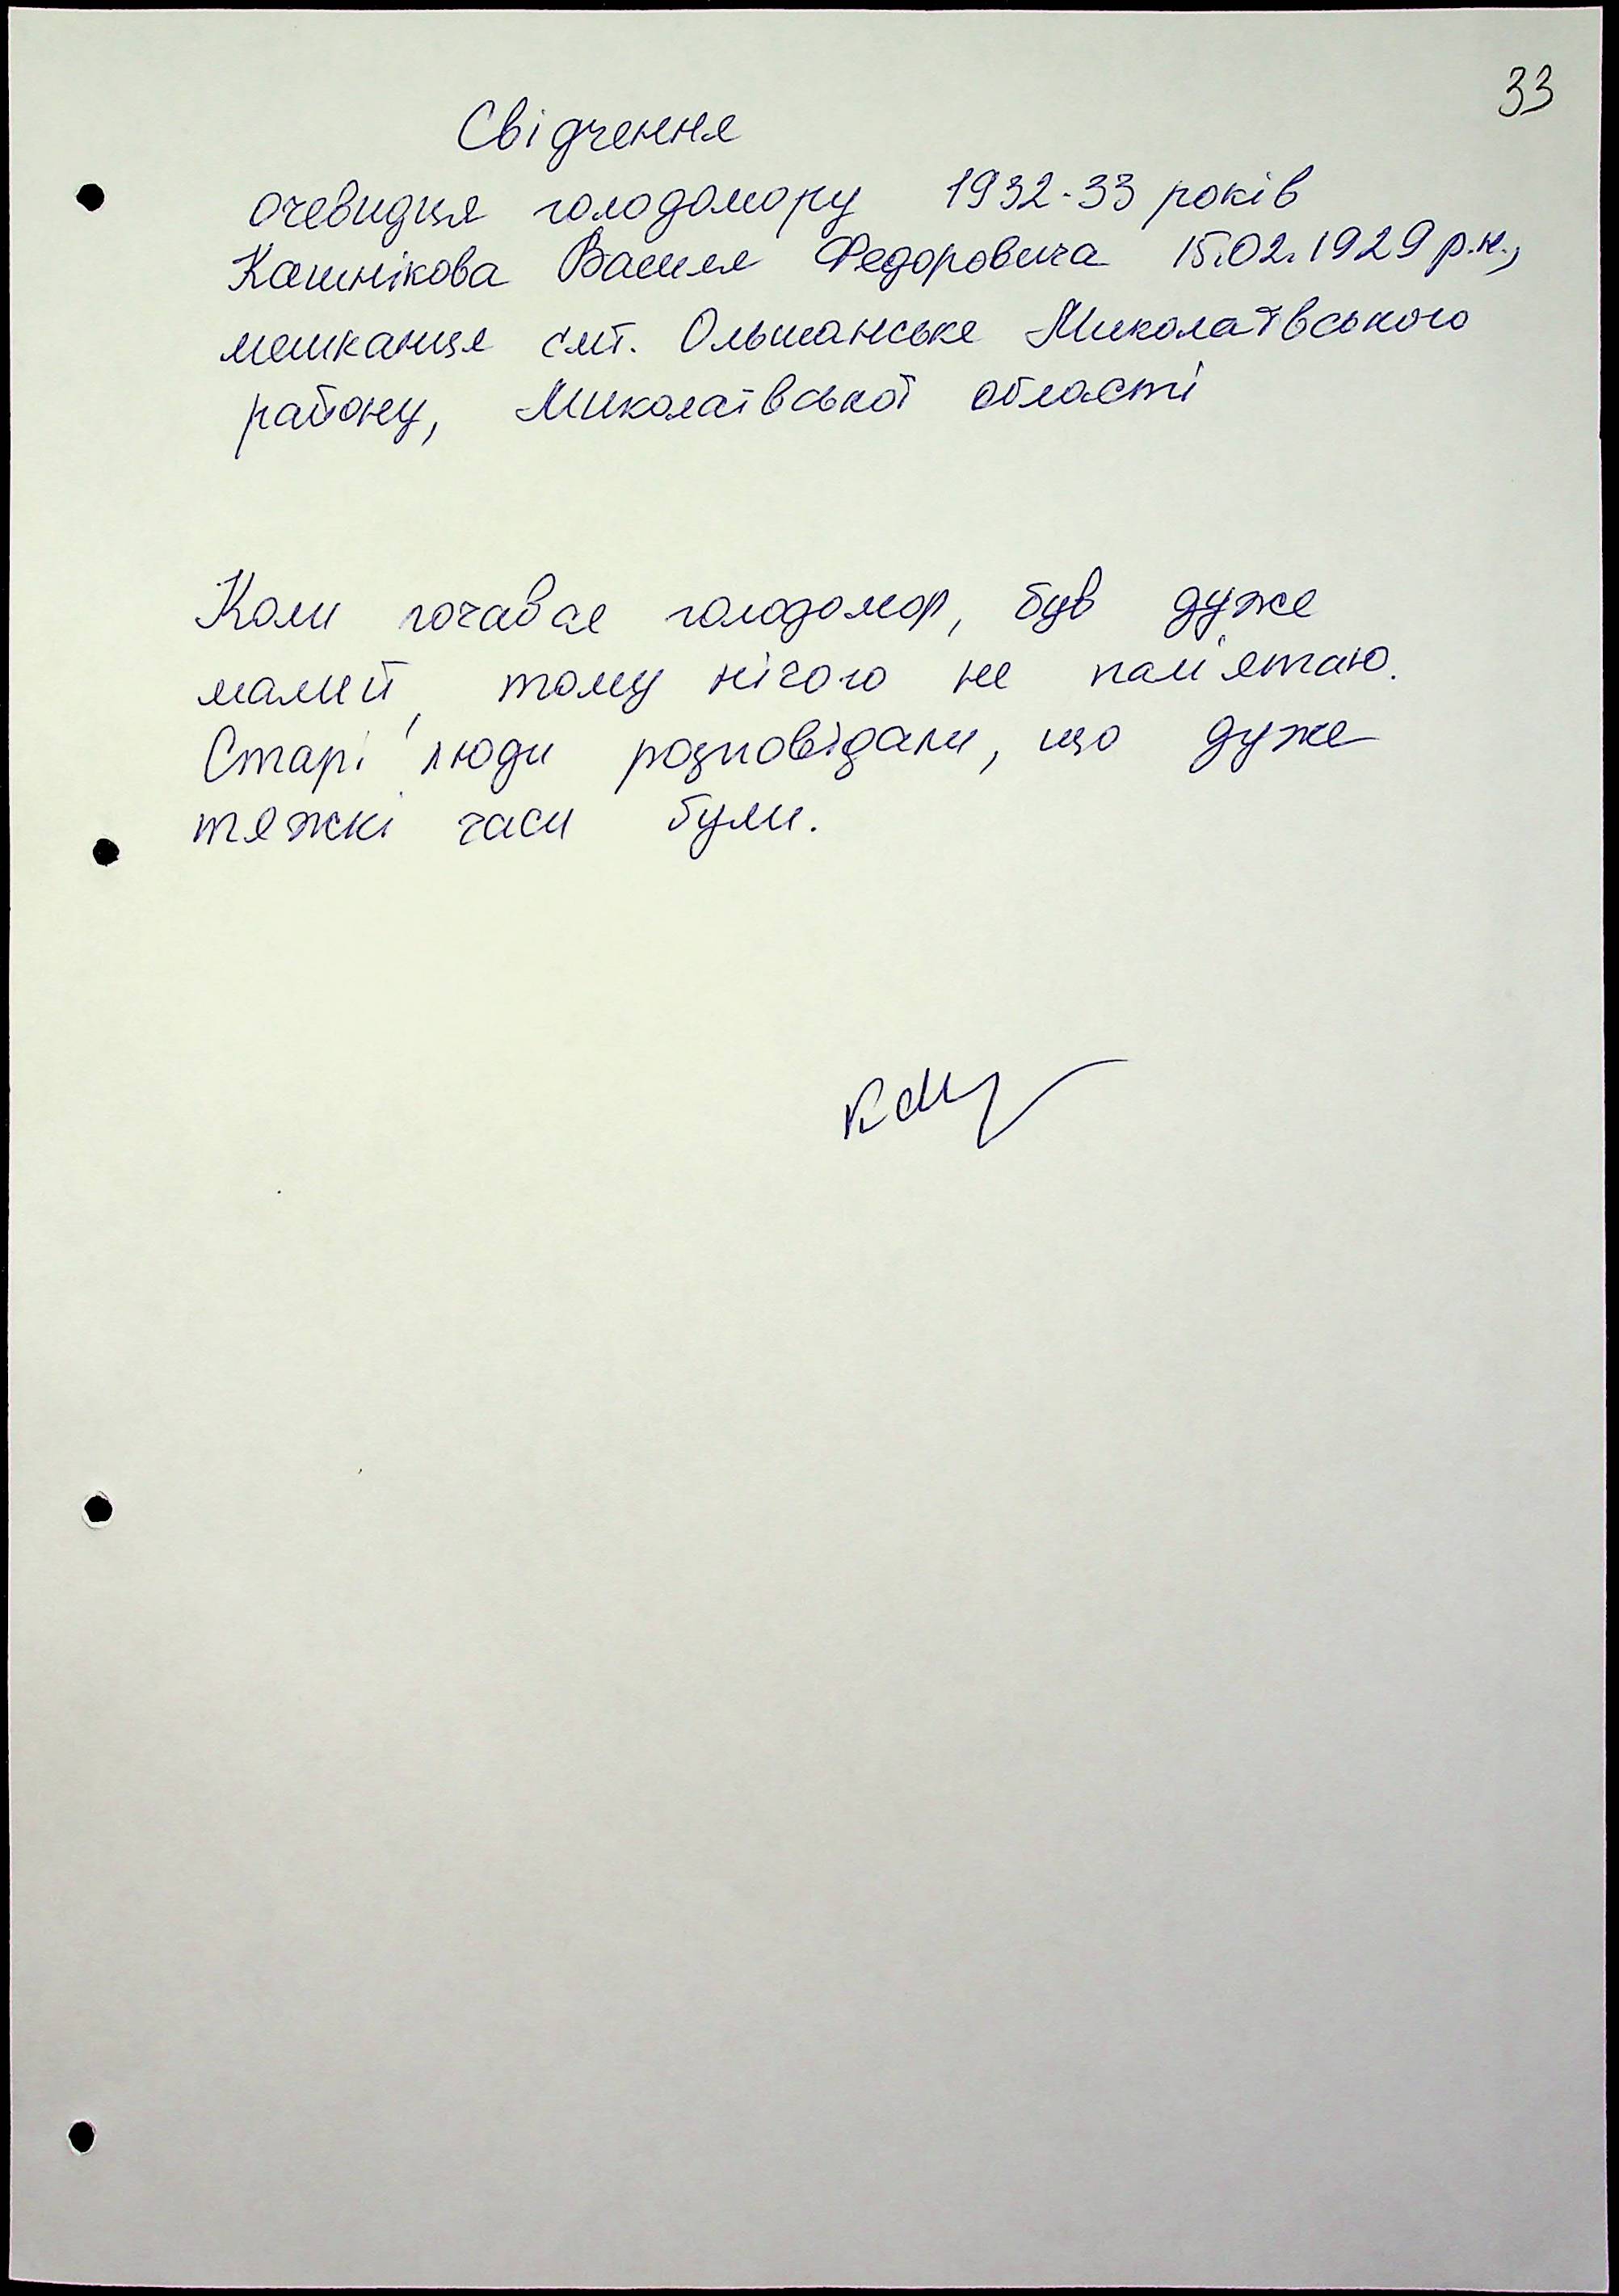 33
Свідчення
очевидця голодомору 1932-33 років
Кашнікова Василя Федоровича 15.02.1929 р.н.,
мешканця смт. Ольшанське Миколаївського
району, Миколаївської області
Коли почався голодомор, був дуже
малий, тому нічого не пам'ятаю.
Старі люди розповідали, що дуже
тяжкі часи були.